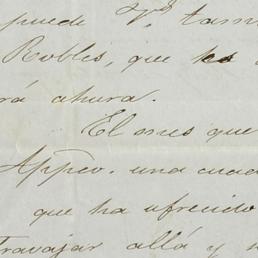 puede V, tam
Robles, que ha
rá ahura.
El mes que
Appco. una cuad
que ha ofrecido
travajar allá y